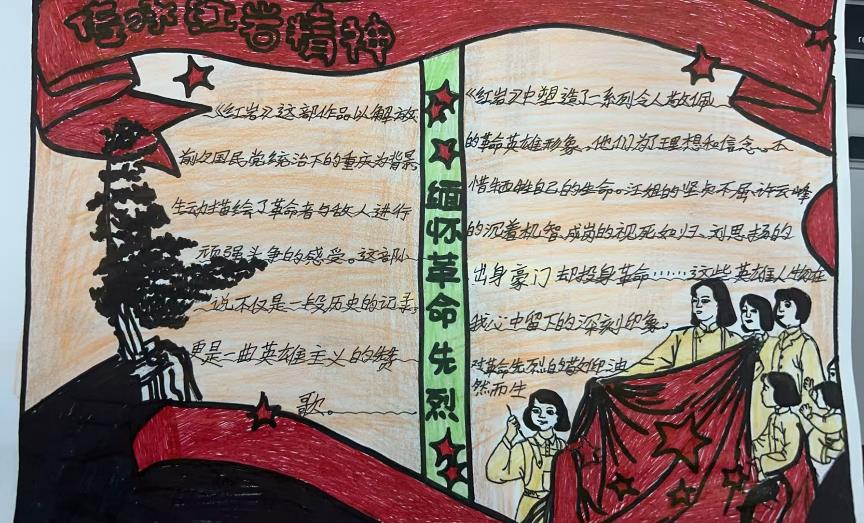 传承红岩精神
《红岩》这部作品以解放
前夕国民党统治下的重庆为背景
生动描绘了革命者与敌人进行
顽强斗争的感受。这部小
说不仅是一段历史的记录，
更是一曲英雄主义的赞
歌。
缅怀革命先烈
《红岩》中塑造了一系列令人敬佩
的革命英雄形象，他们为了理想和信念、不
惜牺牲自己的生命。江姐的坚贞不屈、许云峰
的沉着机智、成岗的视死如归、刘思扬的
出身豪门却投身革命……这些英雄人物在
我心中留下的深刻印象。
对革命先烈的敬仰油
然而生
re